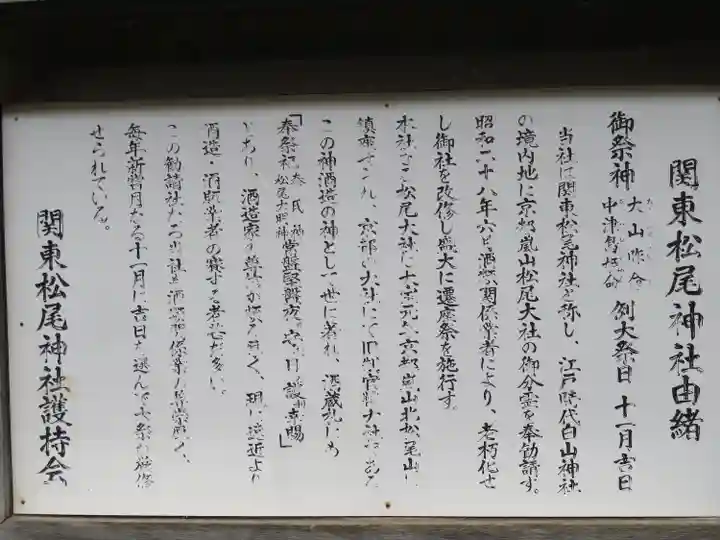 関東松尾神社由緒
御祭神 大山咋命 中津島姫命 例大祭日 十一月吉日
当社は関東松尾神社と称し、江戸時代白山神社
の境内地に京都嵐山松尾大社の御分霊を奉勧請す。
昭和二十八年六月酒類関係業者により、老朽化せ
し御社を改修し盛大に遷座祭を施行す。
本社なる松尾大社は大宝元年京都嵐山北松尾山に
鎮座せられ、京都の大社にて旧別官幣大社である
この神酒造の神として世に著れ、酒蔵札にも
「奉祭祀 秦氏神 松尾大明神 常盤堅磐 」
とあり、酒造家の尊信が極めて篤く、現に遠近より
酒造・酒販業者の賽する者甚だ多い。
この勧請社たる当社も酒類関係業の尊崇厚く、
毎年新嘗月たる十一月に吉日を選んで大祭が厳修
せられている。
関東松尾神社護持会